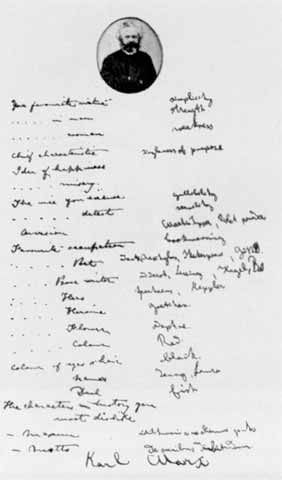 Your favourite virtue simplicity
. . . . . in man strength
. . . . . woman weakness
Chief characteristic singleness of purpose
Idea of happiness
. . . . . misery
The vice you excuse gullibility
. . . . . detest servility
Aversion
Favourite occupation bookworming
. . . . . Poet Shakespeare
. . . . . Prose writer Diderot, Lessing, Hegel
. . . . . Hero Spartacus, Keppler
. . . . . Heroine Gretchen
. . . . . Flower Daphne
. . . . . Colour Red
Colour of eyes & hair black
. . . . . Names Jenny, Laura
. . . . . Dish fish
The characters in history you
most dislike
– Maxim
– Motto De omnibus dubitandum
Karl Marx